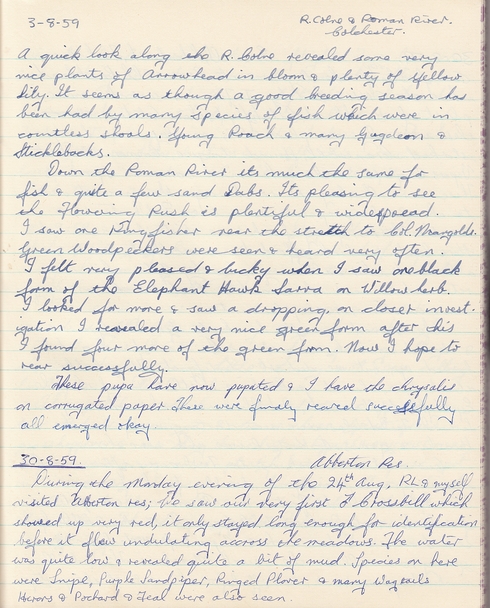 3-8-59 R. Colne & Roman River.
Colchester.
A quick look along the R. Colne revealed some very
nice plants of Arrowhead in bloom & plenty of Yellow
Lily. It seems as though a good breeding season has
been had by many species of fish which were in
countless shoals. Young Roach & many Gudgeon &
Sticklebacks.
Down the Roman River its much the same for
fish & quite a few sand Dabs. Its pleasing to see
the Flowering Rush is plentiful & widespread.
I saw one Kingfisher near the stretch to Col. Mangolds.
Green Woodpeckers were seen & heard very often.
I felt very pleased & lucky when I saw one black
form of the Elephant Hawk Larva on Willowherb.
I looked for more & saw a dropping, on closer invest-
igation I revealed a very nice green form after this
I found four more of the green form. Now I hope to
rear successfully.
These pupa have now pupated & I have the chrysalis
on corrugated paper These were finaly reared successfully
all emerged okay.
30-8-59. Abberton Res.
During the Monday evening of the 24th Aug, RL & myself
visited Abberton res; We saw our very first Crossbill which
showed up very red, it only stayed long enough for identification
before it flew undulating accross the meadows. The water
was quite low & revealed quite a bit of mud. Species on here
were Snipe, Purple Sandpiper, Ringed Plover & many Wagtails
Herons & Pochard & Teal were also seen.